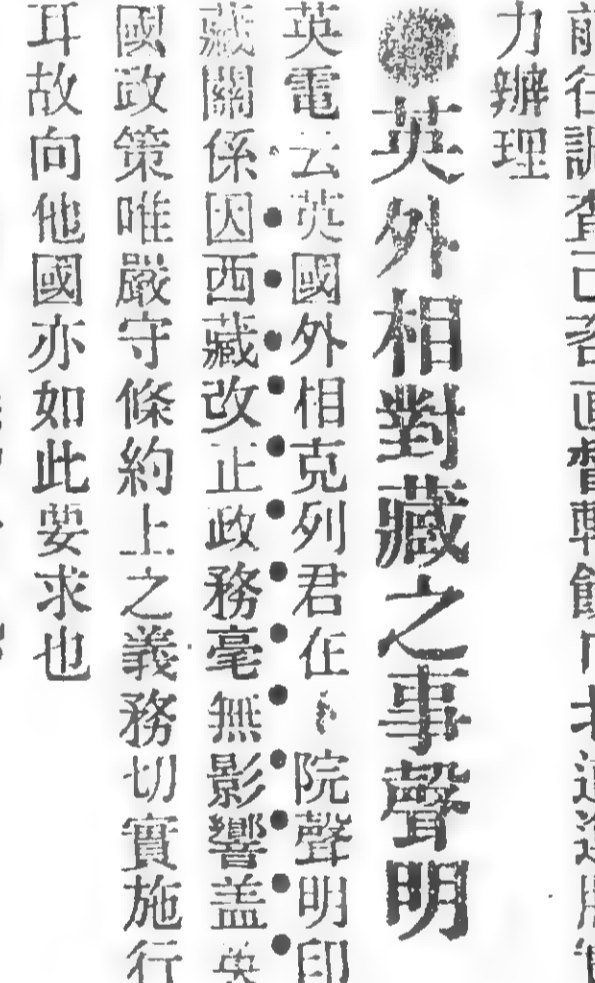 力辦理
英外相對藏之事聲明
英電云英國外相克列君在院聲明印
藏關係因西藏改正政務毫無影響盖英
國政策唯嚴守條約上之義務切實施行
耳故向他國亦如此要求也